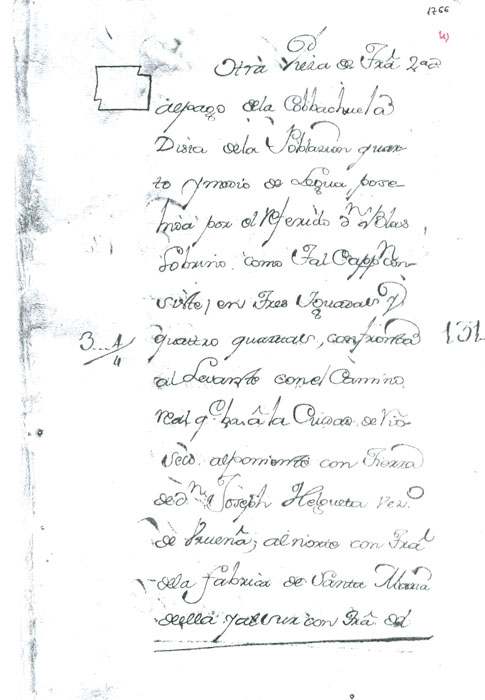 1766
4)
Otra Pieza de Trã 2ª
al pago dela Cobachuela
Dista dela Poblacion quar-
to y medio de Legua, posse-
hida por el Referido Dn Blas
Sobrino, como Tal Cappn con-
siste, en Tres Yguadas y
3..1/4 quattro quartas, confronta 131.
al Levante con el Camino
real q.e ba â la Ciudad de Rio
seco. al poniente con Tierra
de Dn Joseph Helgueta vez.o
de Ruena; al norte con Trã
dela fabrica de Santa Maria
deella y al sur con Trã de